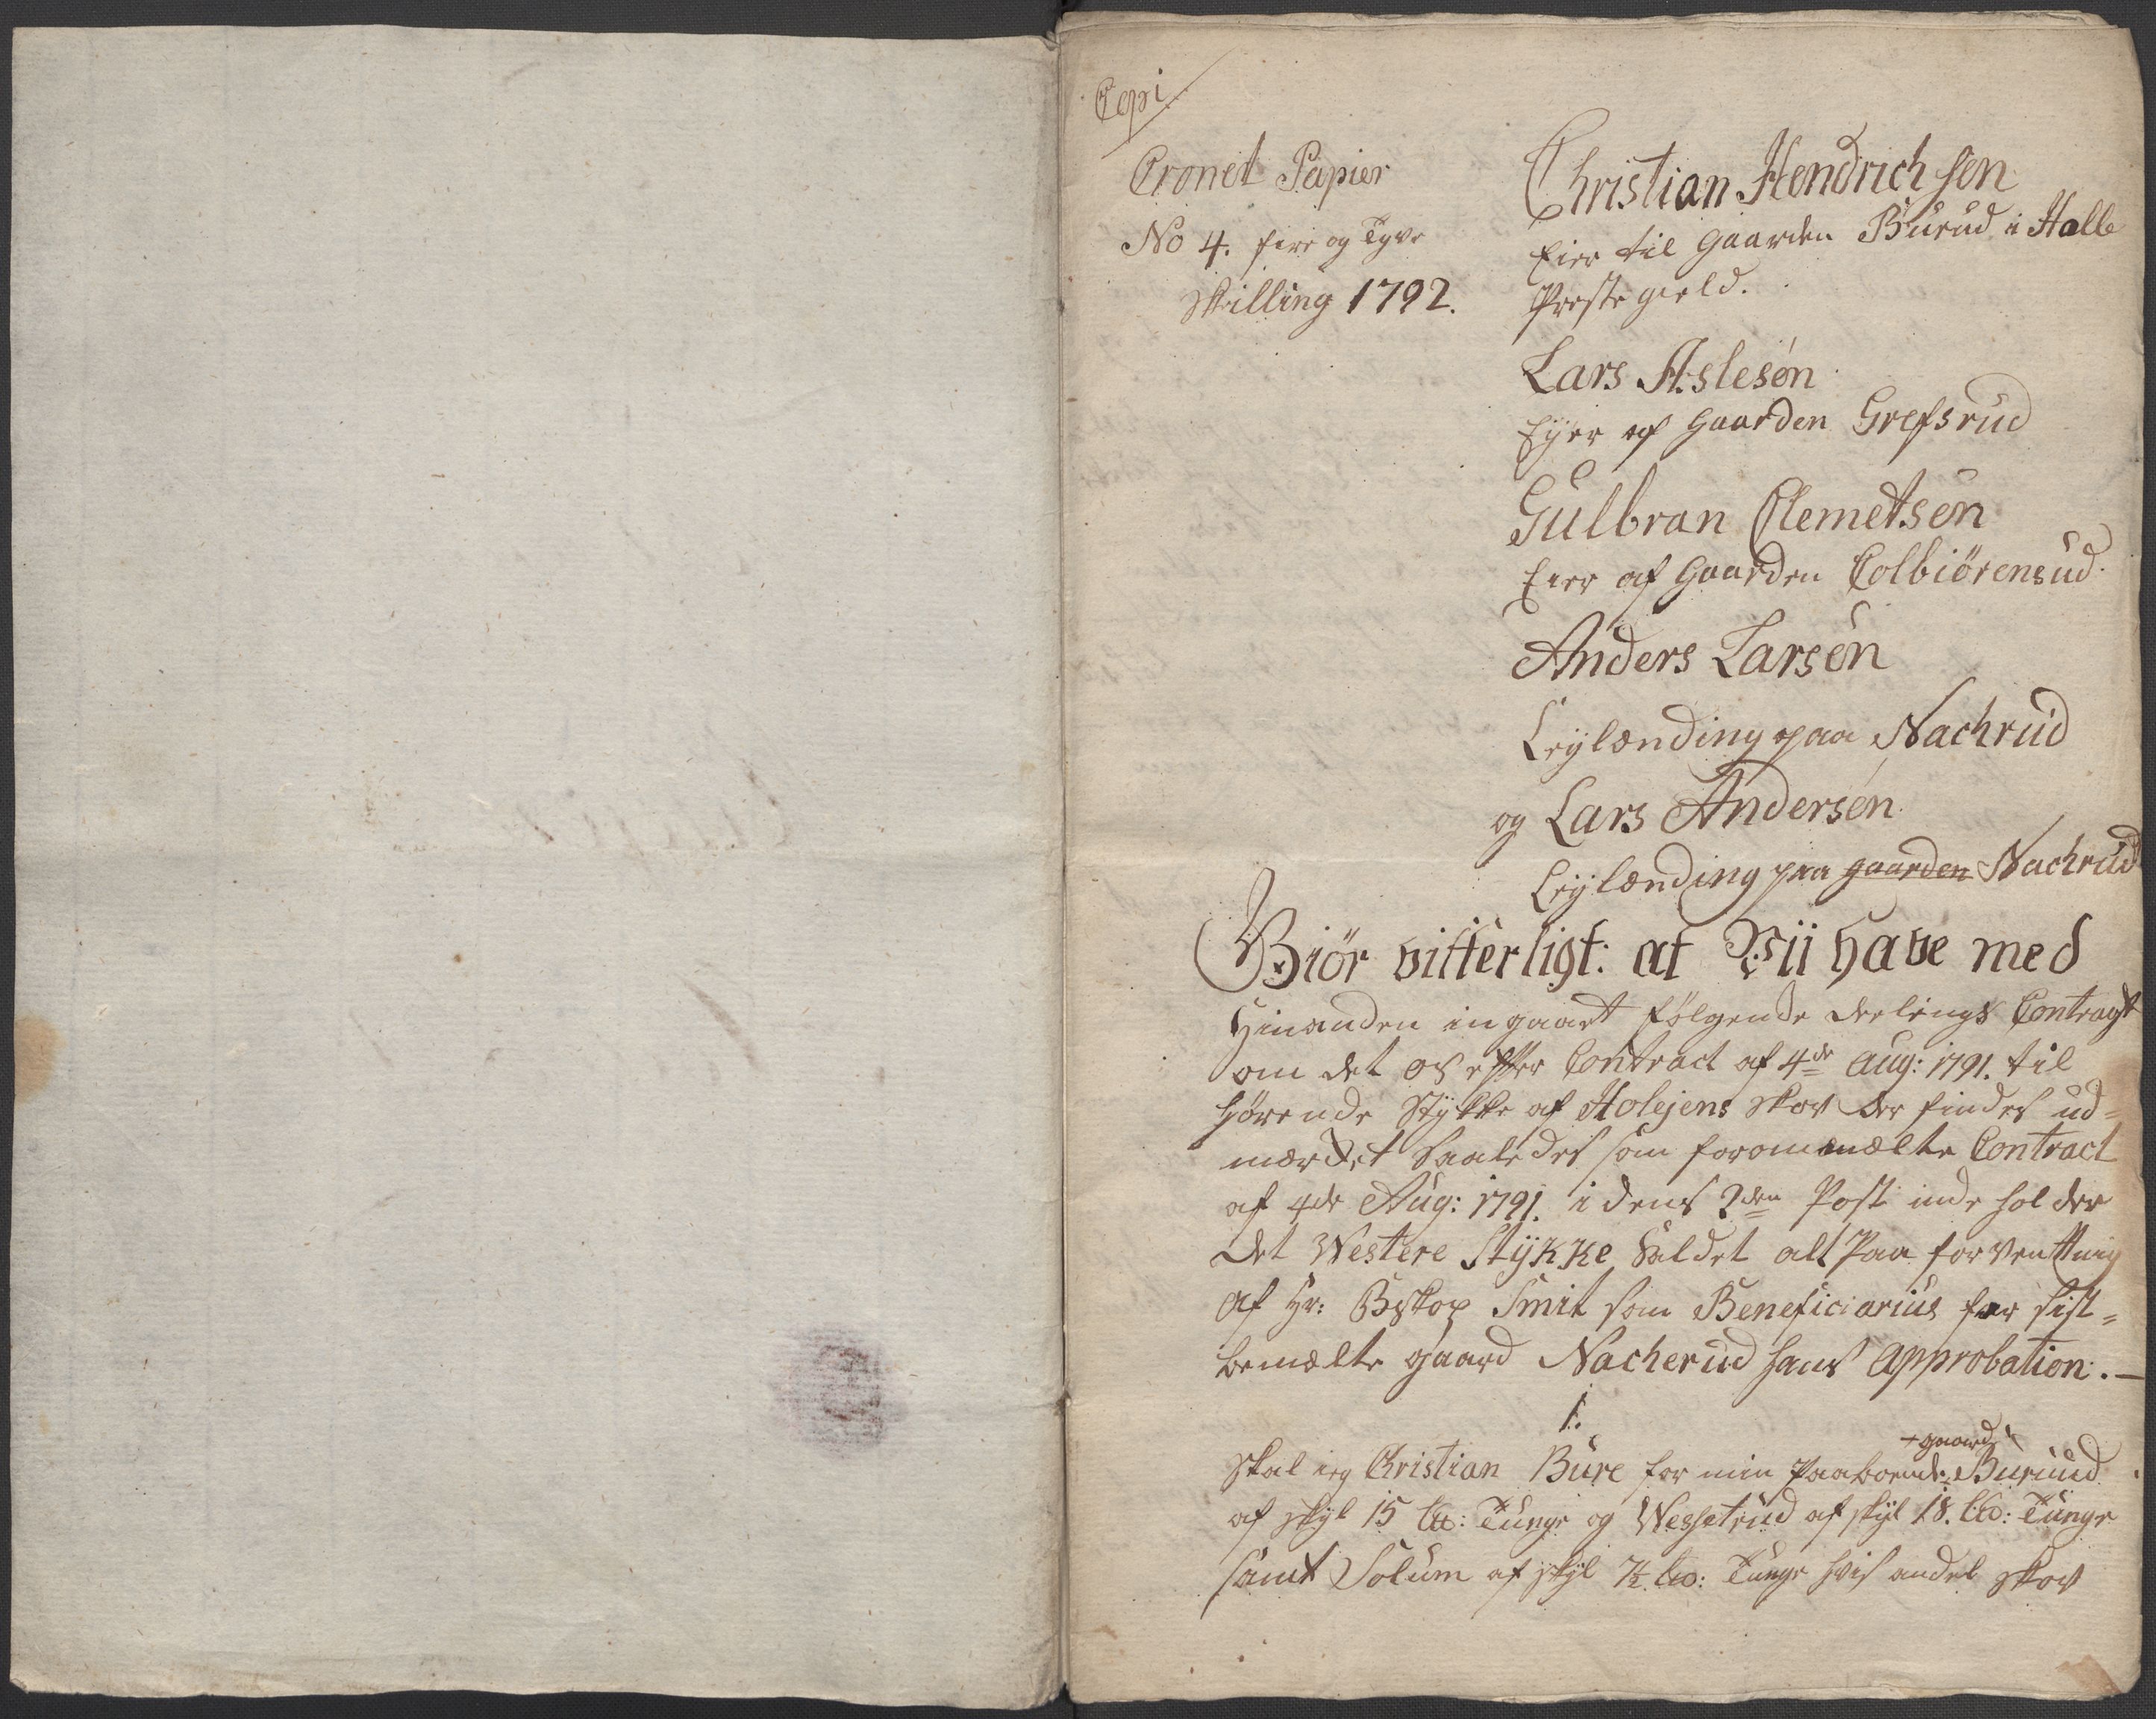 Copi
Cronet Papier
No 4. fire og Tyve
Skilling 1792.
Christian Hendrichsen
Eier til Gaarden Burud i Halle
Præste gield.
Lars Aslesøn
Eÿer af Gaarden Grefsrud
Gulbran Clemetsen
Eier af Gaarden Colbiörensud.
Anders Larsøn
Leÿlænding paa Nachrud
og Lars Andersøn
Leÿlænding paa gaarden Nachrud
Giör vitterligt: at Vii have med
Hinanden ingaaet følgende deelings Contragt
om det os efter Contract af 4de Aug: 1791. til
hørende Stÿkke af Holejens Skov der findes ud=
mærket saaledes som foromtmælte Contract
af 4de Aug: 1791. i dens 2den Post inde holder
det Westere Stÿkke kaldet alt Paa forventtning
af Hr: Biskop Smit som Beneficiarius for sist=
bemælte gaard Nacherud hans Approbation. —
1.
Skal ieg Christian Bure for min Paaboende gaard Buruud
af skÿl 15 : Tunge og Wessetrud af skÿl 18. : Tunge
samt Solum af skÿl 7½ : Tunge hvis andel skov